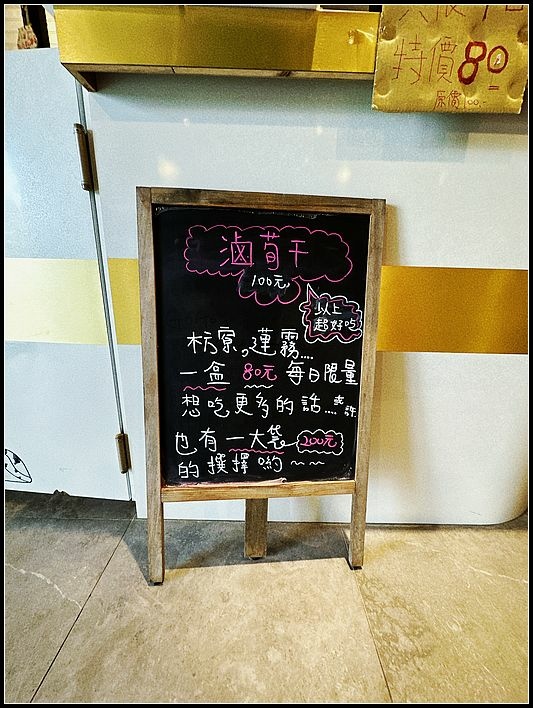 特價80
原價100.-
滷筍干
100元
以上
超好吃
枋寮。蓮霧....
一盒 80元 每日限量
想吃更多的話....或許
也有一大袋 200元
的撰擇喲～～